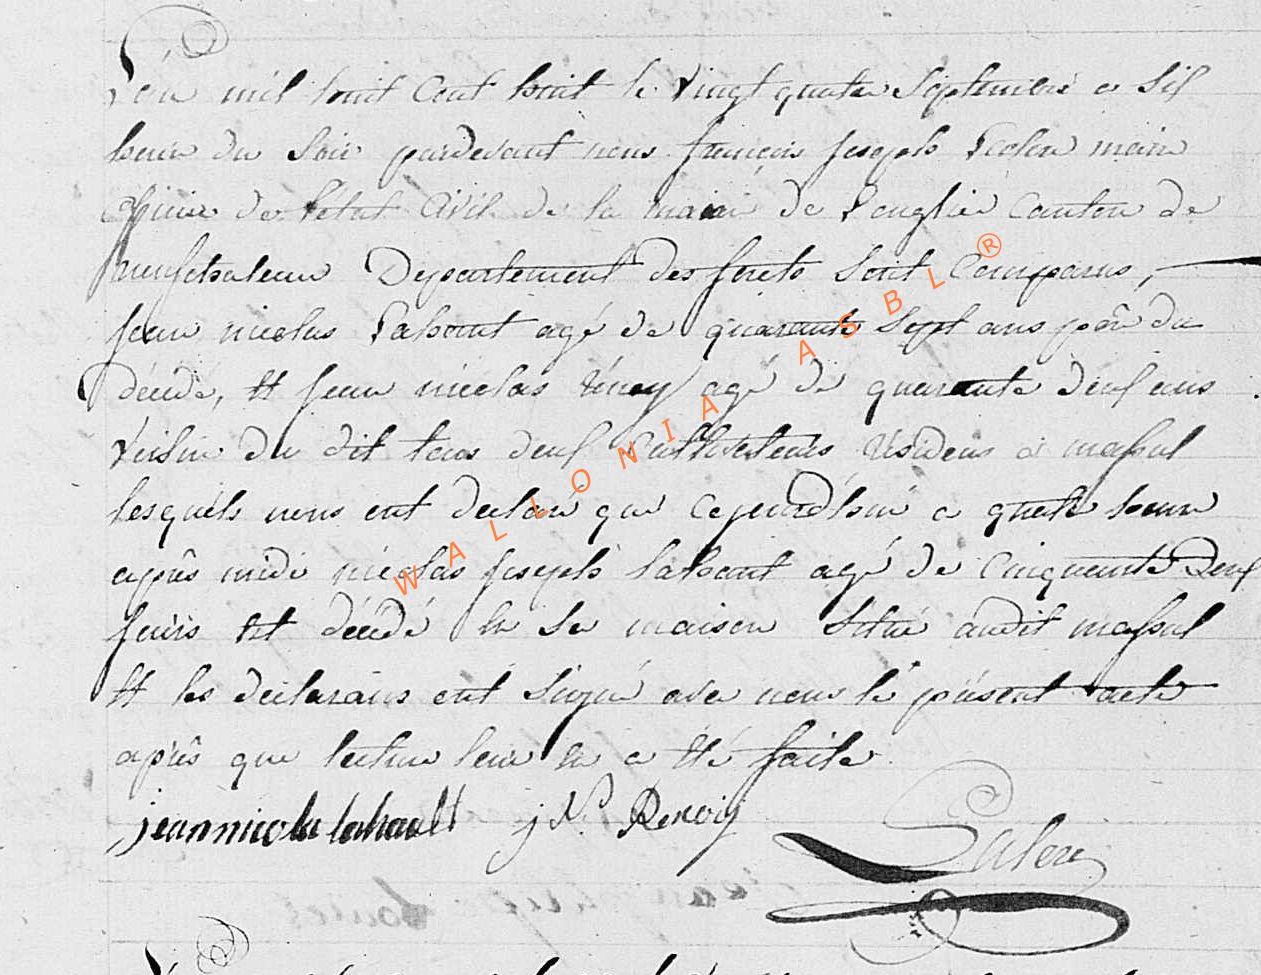 L'an mil huit Cent huit le vingt quatre Septembre a Six
heure du Soir pardevant nous françois Joseph maire
officier de l'état Civil de la mairie de Longlier Canton de
neufchateau Departement des forêts Sont Comparus,
Jean nicolas Lahaut agé de quarante Sept ans du
décédé, et Jean nicolas agé de quarante deux ans
Voisin du dit tous deux Cultivateurs résidens à massul
lesquels nous ont declaré que cejourdhui a quatre heure
après midi nicolas Joseph lahaut agé de Cinquante Deux
jours est décédé en Sa maison Situé audit massul
et les declarans ont Signé avec nous le présent acte
après que lecture leur en a été faite
jean nicola lahault j N. Renoiy
WALLONIA ASBL ®